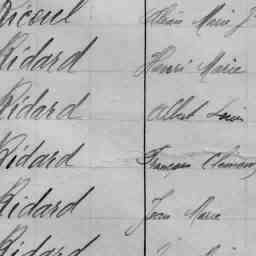 Ricoul Marie J
Ridard Henri Marie
Ridard Albert Louis
Ridard François
Ridard Jean Marie
Ridard